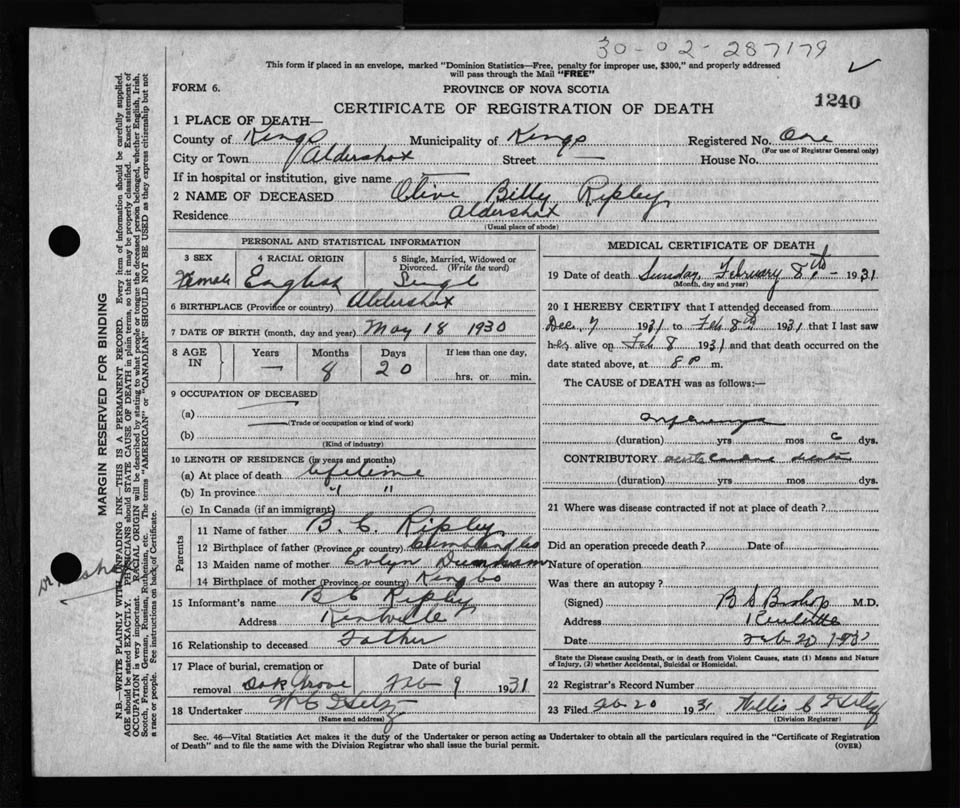 30-02-287179
This form if placed in an envelope, marked "Dominion Statistics—Free, penalty for improper use, $300," and properly addressed
will pass through the Mail "FREE"
FORM 6. PROVINCE OF NOVA SCOTIA
1240
CERTIFICATE OF REGISTRATION OF DEATH
1 PLACE OF DEATH—
County of Kings Municipality of Kings Registered No. One
(For use of Registrar General only)
City or Town Aldershot Street — House No.
If in hospital or institution, give name —
2 NAME OF DECEASED Olive Billy Ripley
Residence Aldershot
(Usual place of abode)
PERSONAL AND STATISTICAL INFORMATION
3 SEX 4 RACIAL ORIGIN 5 Single, Married, Widowed or
Divorced. (Write the word)
Female English Single
6 BIRTHPLACE (Province or country) Aldershot
7 DATE OF BIRTH (month, day and year) May 18 1930
8 AGE IN Years Months Days If less than one day,
— 8 20 hrs. or min.
9 OCCUPATION OF DECEASED
(a)
(Trade or occupation or kind of work)
(b)
(Kind of industry)
10 LENGTH OF RESIDENCE (in years and months)
(a) At place of death lifetime
(b) In province " "
(c) In Canada (if an immigrant)
Parents
11 Name of father B. C. Ripley
12 Birthplace of father (Province or country) Cumberland Co
13 Maiden name of mother Evlyn Dunham
14 Birthplace of mother (Province or country) Kings Co
15 Informant's name B C Ripley
Address Kentville
16 Relationship to deceased Father
17 Place of burial, cremation or Date of burial
removal Oak Grove Feb 9 1931
18 Undertaker
(Name and address)
MEDICAL CERTIFICATE OF DEATH
19 Date of death Sunday, February 8th - 1931
(Month, day and year)
20 I HEREBY CERTIFY that I attended deceased from
Dec, 7 1931 to Feb 8th 1931 that I last saw
her alive on Feb 8 1931 and that death occurred on the
date stated above, at 8 P m.
The CAUSE OF DEATH was as follows:—
(duration) yrs mos 6 dys.
CONTRIBUTORY acute
(duration) yrs. mos. dys.
21 Where was disease contracted if not at place of death?
Did an operation precede death? Date of
Nature of operation
Was there an autopsy?
(Signed) B S Bishop M.D.
Address Kentville
Date Feb 20 1931
State the Disease causing Death, or in death from Violent Causes, state (1) Means and Nature
of Injury, (2) whether Accidental, Suicidal or Homicidal.
22 Registrar's Record Number
23 Filed Feb 20 1931 Willis C
(Division Registrar)
Sec. 46—Vital Statistics Act makes it the duty of the Undertaker or person acting as Undertaker to obtain all the particulars required in the "Certificate of Registration
of Death" and to file the same with the Division Registrar who shall issue the burial permit. (OVER)
MARGIN RESERVED FOR BINDING
N.B.—WRITE PLAINLY WITH UNFADING INK—THIS IS A PERMANENT RECORD. Every item of information should be carefully supplied.
AGE should be stated EXACTLY. PHYSICIANS should STATE CAUSE OF DEATH in plain terms, so that it may be properly classified. Exact statement of
OCCUPATION is very important. RACIAL ORIGIN will be described by stating to what people or tongue the deceased person belonged, whether English, Irish,
Scotch, French, German, Russian, Ruthenian, etc. The terms "AMERICAN" or "CANADIAN" SHOULD NOT BE USED as they express citizenship but not
a race or people. See instructions on back of Certificate.